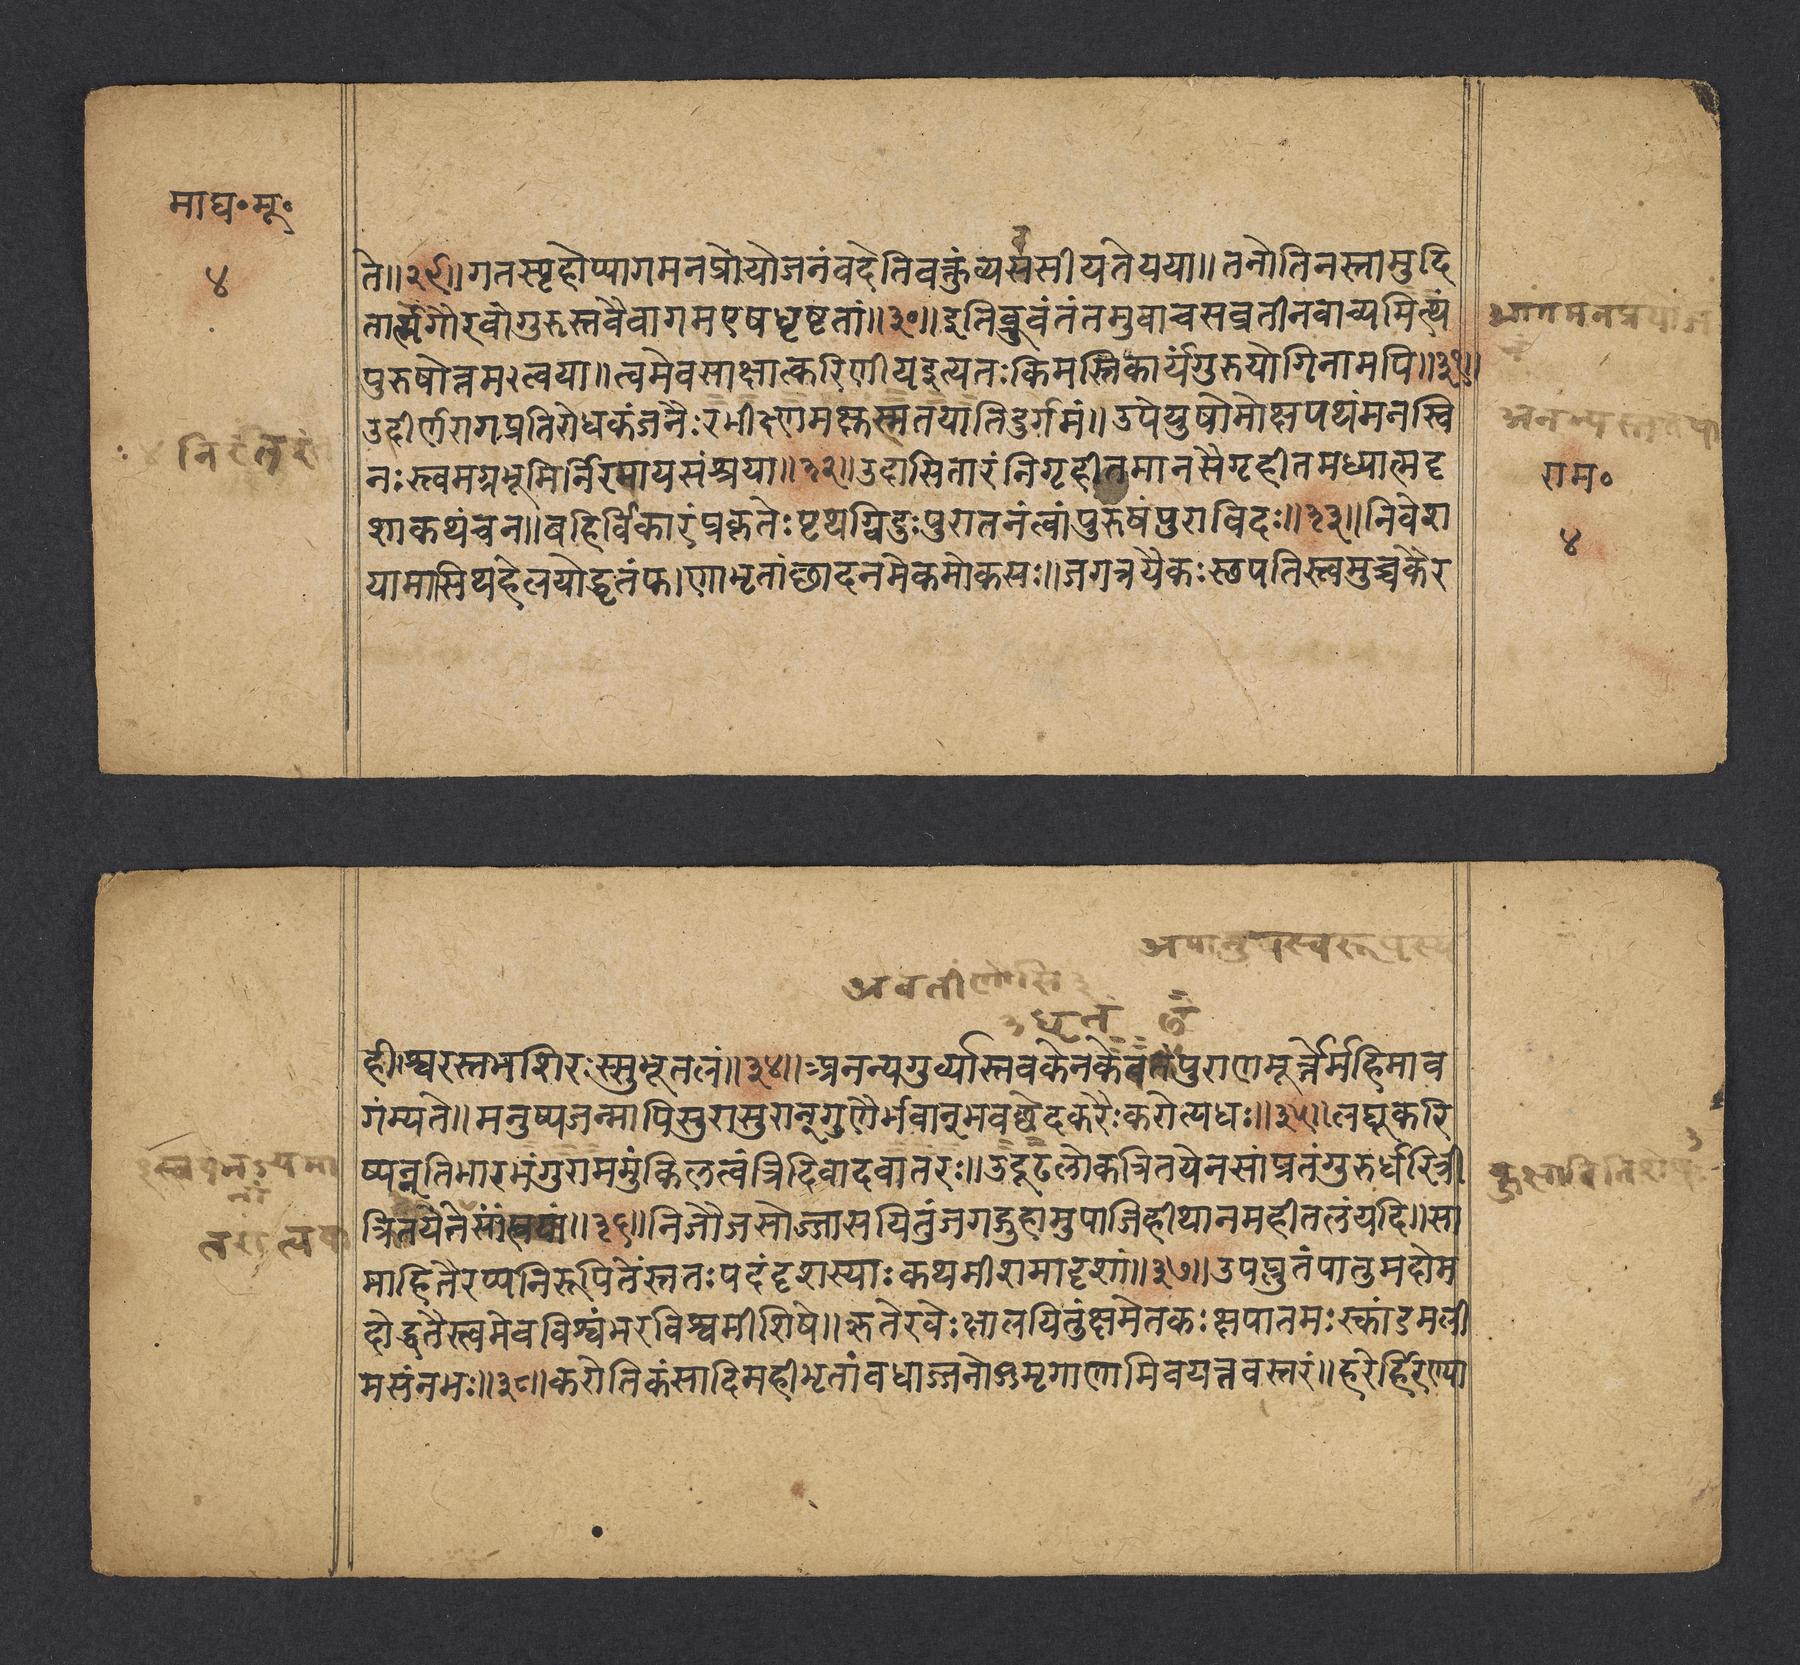 माघ॰मू॰
४
ते॥२९॥गतस्पृहोप्यागमनप्रोयोजनंवदेतिवक्तुंव्यवसीयतेयया॥तनोतिनस्तामुदि
तात्मगौरवोगुरुस्तवैवागमएषधृष्टतां॥३०॥इतिब्रुवंतंतमुवाचसव्रतीनवाच्यमित्थं
पुरुषोत्तमत्वया॥त्वमेवसाक्षात्करिणीयइत्यतःकिमस्तिकार्यंगुरुयोगिनामपि॥३१॥
उदीर्णरागप्रतिरोधकंजनैःरभीक्ष्णमक्षुस्मतयातिदुर्गमं॥उपेयुषोमोक्षपथंमनस्वि
नःस्त्वमग्रभूमिर्निरपायसंश्रया॥३२॥उदासितारंनिगृहीतमानसैगृहीतमध्यात्मदृ
शाकथंचन॥बहिर्विकारंप्रकृतेःपृथग्विदुःपुरातनंत्वांपुरुषंपुराविदः॥३३॥निवेश
यामासिथहेलयोद्धृतंफणाभृतांछादनमेकमोकसः॥जगत्रयैकःस्छपतिस्त्वमुच्चकैर
राम॰
४
अवतीर्णोसि
हीश्वरस्तंभशिरःस्सुभूतलं॥३४॥अनन्यगुर्व्यास्तवकेनकेवलंपुराणमूर्त्तेर्महिमाव
गंम्यते॥मनुष्यजन्मापिसुरासुरान्गुणैर्भवान्भवच्छेदकरैःकरोत्यधः॥३५॥लघूंकरि
ष्यन्नतिभारभंगुरामभुंकिलत्वंत्रिदिवादवातरः॥उदूढलोकत्रितयेनसांप्रतंगुरुर्धरित्री
त्रितयेनेसांत्वया॥३६॥निजौजसोज्जासयितुंजगद्रुहामुपाजिहीथानमहीतलंयदि॥सा
माहितैरप्यनिरूपितेस्ततःपदंदृशास्याःकथमीशमादृशां॥३७॥उपप्लुतंपातुमदोम
दोद्धतैस्त्वमेवविश्वंभरविश्वमीशिषे॥ऋतेरवेःक्षालयितुंक्षमेतकःक्षपातमःस्कांडमली
मसंनभः॥३८॥करोतिकंसादिमहीभृतांवधाज्जनोमृगाणामिवयत्तवस्तरं॥हरेर्हिरण्या